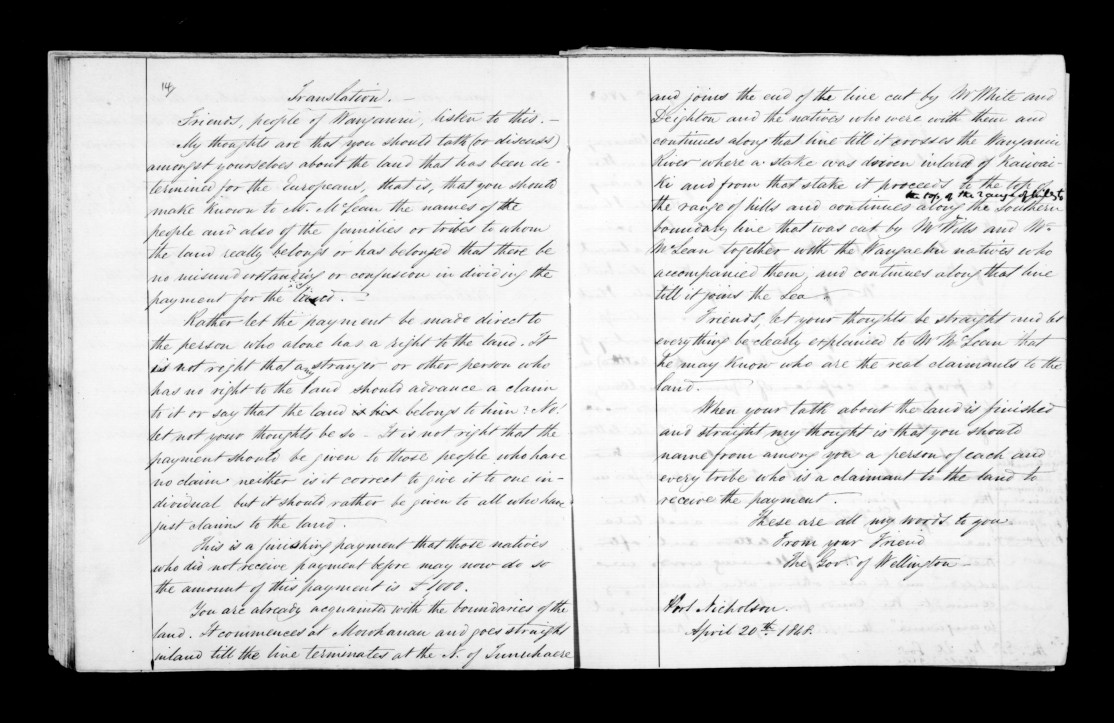 14/
Translation. —
Friends, people of Wanganui, listen to this. —
My thoughts are that you should talk (or discuss)
amongst yourselves about the land that has been de-
termined for the Europeans, that is, that you should
make known to Mr. McLean the names of the
people and also of the families or tribes to whom
the land really belongs or has belonged that there be
no misunderstanding or confusion in dividing the
payment for the land. —
Rather let the payment be made direct to
the person who alone has a right to the land. It
is not right that any stranger or other person who
has no right to the land should advance a claim
to it or say that the land is his belongs to him? No!
let not your thoughts be so — It is not right that the
payment should be given to those people who have
no claim neither is it correct to give it to one in-
dividual but it should rather be given to all who have
just claims to the land. —
This is a finishing payment that those natives
who did not receive payment before may now do so
the amount of this payment is £1000.
You are already acquainted with the boundaries of the
land. It commences at Mowhanau and goes straight
inland till the line terminates at the N. of Tunuhaere
and joins the end of the line cut by Mr White and
Deighton and the natives who were with them and
continues along that line till it crosses the Wanganui
River where a stake was driven inland of Kaiwai-
ki and from that stake it proceeds to the top of
the top of the range of hills to
the range of hills and continues along the southern
boundary line that was cut by Mr Wills and Mr.
McLean together with the Wangaehu natives who
accompanied them, and continues along that line
till it joins the Sea. —
Friends, let your thoughts be straight and let
everything be clearly explained to Mr McLean that
he may know who are the real claimants to the
land. —
When your talk about the land is finished
and straight my thought is that you should
name from among you a person of each and
every tribe who is a claimant to the land to
receive the payment. —
These are all my words to you
From your Friend
The Govr. of Wellington —
Port Nicholson.
April 20th. 1848.